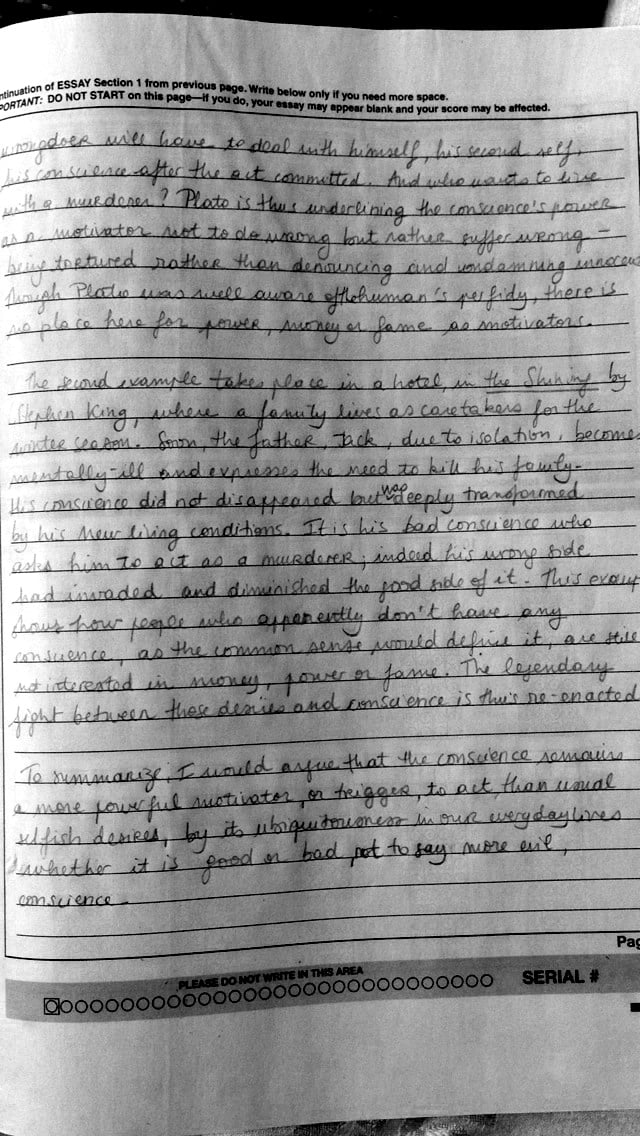 ntinuation of ESSAY Section 1 from previous page. Write below only if you need more space.
PORTANT: DO NOT START on this page—if you do, your essay may appear blank and your score may be affected.
wrongdoer will have to deal with himself, his second self,
his conscience after the act committed. And who wants to live
with a murderer? Plato is thus underlining the conscience's power
as a motivator not to do wrong but rather suffer wrong –
being tortured rather than denouncing and condamning innocen
Though Plato was well aware of human's perfidy, there is
no place here for power, money or fame as motivators.
The second example takes place in a hotel, in the Shining by
Stephen King, where a family lives as caretakers for the
winter season. Soon, the father, Jack, due to isolation, becomes
mentally-ill and expresses the need to kill his family.
His conscience did not disappeared but was deeply transformed
by his new living conditions. It is his bad conscience who
asks him to act as a murderer; indeed his wrong side
had invaded and diminished the good side of it. This examp
shows how people who apparently don't have any
conscience, as the common sense would define it, are still
not interested in money, power or fame. The legendary
fight between these desires and conscience is thus re-enacted
To summarize, I would argue that the conscience remains
a more powerful motivator, or trigger, to act, than usual
selfish desires, by its ubiquitousness in our everyday lives
whether it is good or bad, not to say more evil,
conscience.
Pag
PLEASE DO NOT WRITE IN THIS AREA
SERIAL #